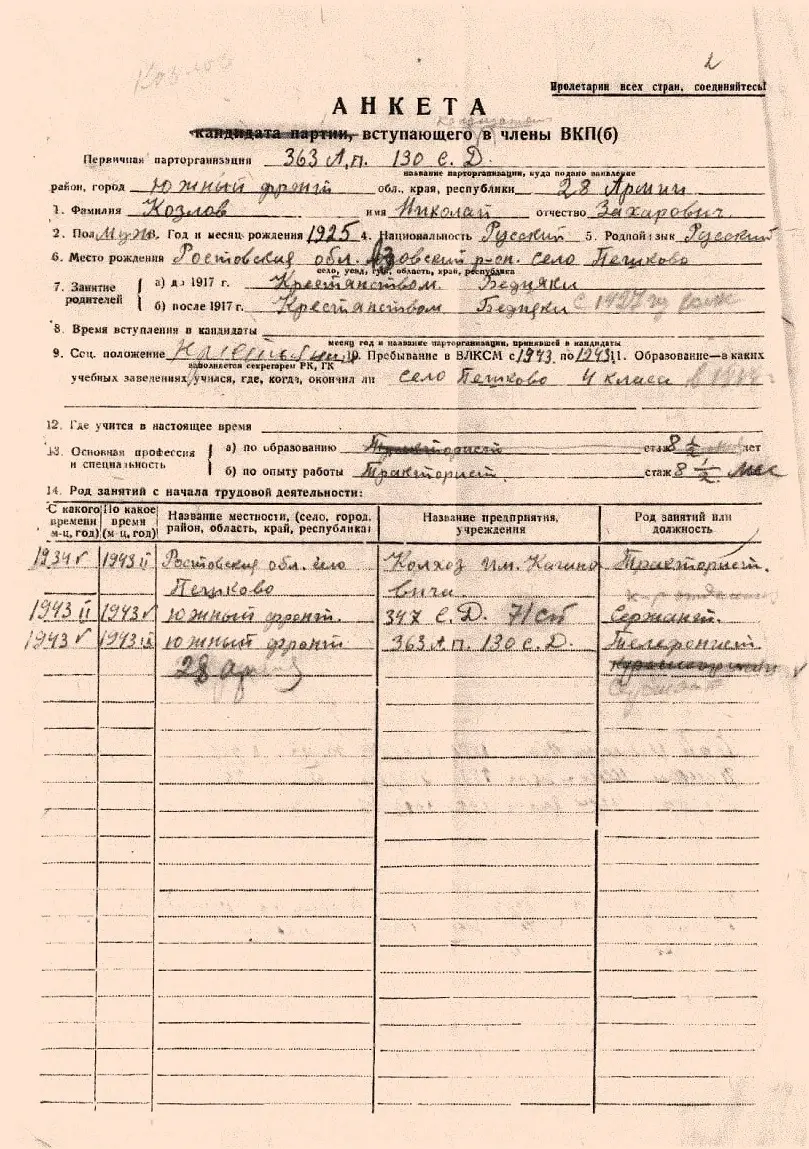 Козлов
2
Пролетарии всех стран, соединяйтесь!
АНКЕТА
кандидата партии, вступающего в члены ВКП(б)
Первичная парторганизация 363 А.п. 130 С.Д.
название парторганизации, куда подано заявление
район, город Южный фронт обл., края, республики 28 Армии
1. Фамилия Козлов имя Николай отчество Захарович.
2. Пол Муж. Год и месяц рождения 1925 4. Национальность Русский 5. Родной язык Русский
6. Место рождения Ростовская обл. Азовский р-он. село Пешково
село, уезд, губ., область, край, республика
7. Занятие родителей { а) до 1917 г. Крестянством Бедняки
б) после 1917 г. Крестянством Бедняки с 1927 г.
8. Время вступления в кандидаты
месяц год и название парторганизации, принявшей в кандидаты
9. Соц. положение 10. Пребывание в ВЛКСМ с 1943 по 1943 11. Образование—в каких
заполняется секретарем РК, ГК
учебных заведениях учился, где, когда, окончил ли село Пешково 4 класса
12. Где учится в настоящее время
13. Основная профессия и специальность { а) по образованию Тракторист стаж 8 1/2 лет
б) по опыту работы Тракторист. стаж 8 1/2 мес
14. Род занятий с начала трудовой деятельности:
С какого времени м-ц, год) По какое время (м-ц, год) Название местности, (село, город, район, область, край, республика) Название предприятия, учреждения Род занятий или должность
1934 V 1943 II Ростовская обл. село Колхоз им. Кагано Тракторист.
Пешково вича.
1943 II 1943 V Южный фронт. 347 С.Д. 71 сп Сержант.
1943 V 1943 IX Южный фронт 363 А.п. 130 С.Д. Телефонист
28 Арм